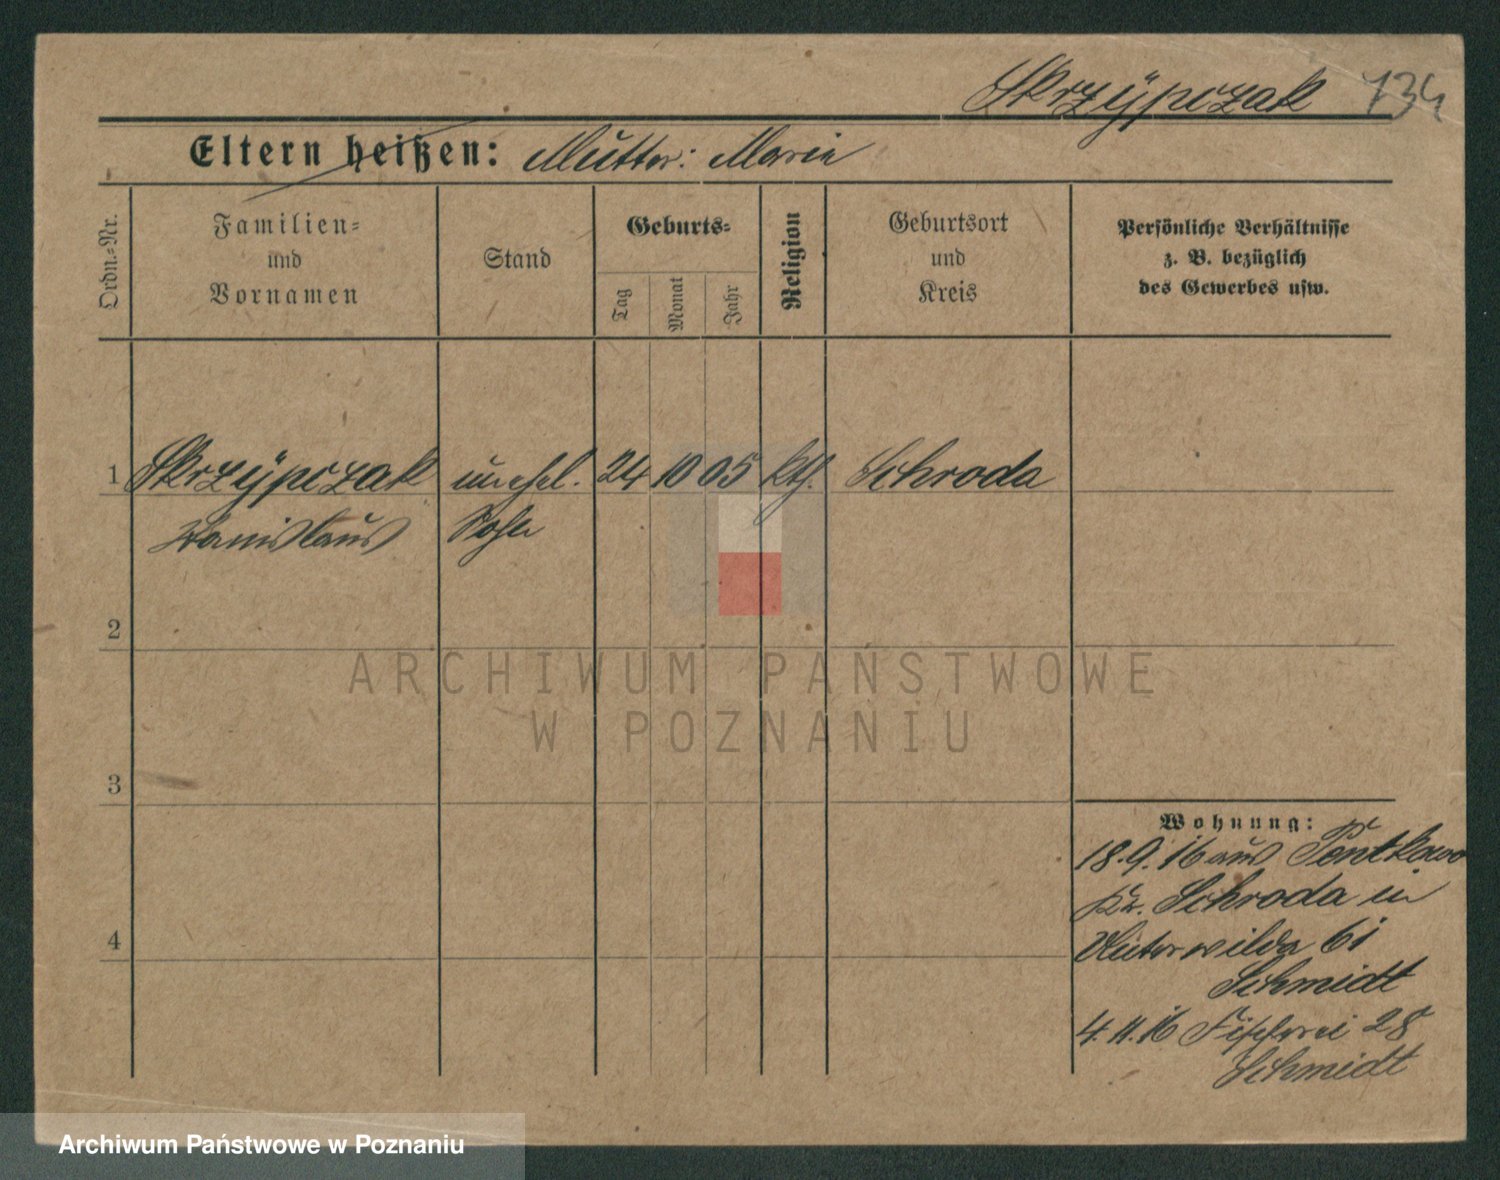 Skrzÿpczak 734
Eltern heißen: Mutter: Marie
Ordn.-Nr.
Familien-
und
Vornamen
Stand
Geburts-
Tag
Monat
Jahr
Religion
Geburtsort
und
Kreis
Persönliche Verhältnisse
z. B. bezüglich
des Gewerbes usw.
1 Skrzÿpczak unehel. 24 10 05 kth. Schroda
Stanislaus Sohn
2
3
4
Wohnung:
18.9.16 aus Pontkowo
Kr. Schroda in
Unterwilda 61
Schmidt
4.11.16 Fischerei 28
Schmidt
ARCHIWUM PAŃSTWOWE
W POZNANIU
Archiwum Państwowe w Poznaniu